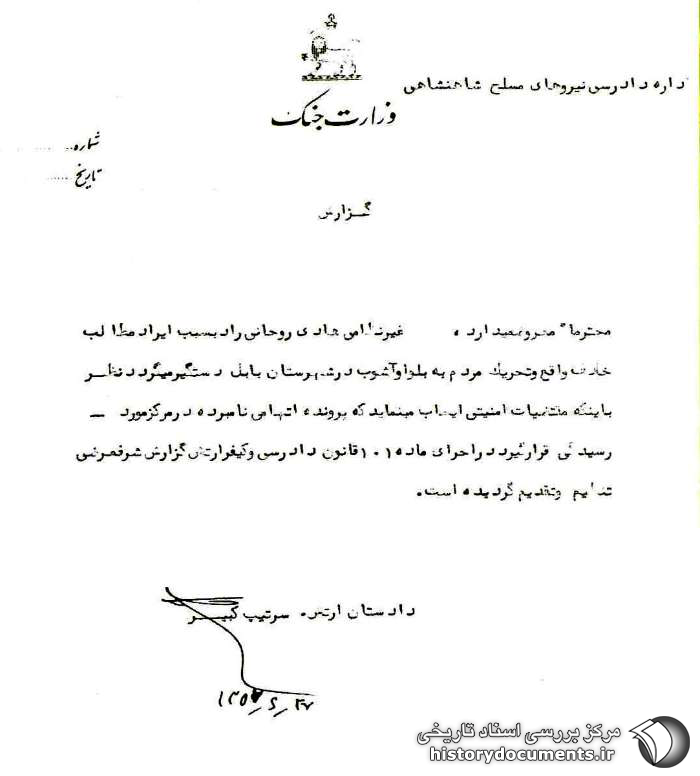 اداره دادرسی نیروهای مسلح شاهنشاهی
وزارت جنگ
شماره
تاریخ
گزارش
محترماً معروضمیدارد، غیرنظامی هادی روحانی راد بسبب ایراد مطالب
خلاف واقع وتحریک مردم به بلوا وآشوب درشهرستان بابل دستگیرمیگردد نظر
باینکه مقتضیات امنیتی ایجاب مینماید که پرونده اتهامی نامبرده درمرکزمورد
رسیدگی قرارگیرد دراجرای ماده ۱۰۱ قانون دادرسی وکیفرارتش گزارش شرفعرضی
تنظیم وتقدیم گردیده است.
دادستان ارتش. سرتیپ کبیر
مرکز بررسی اسناد تاریخی
historydocuments.ir